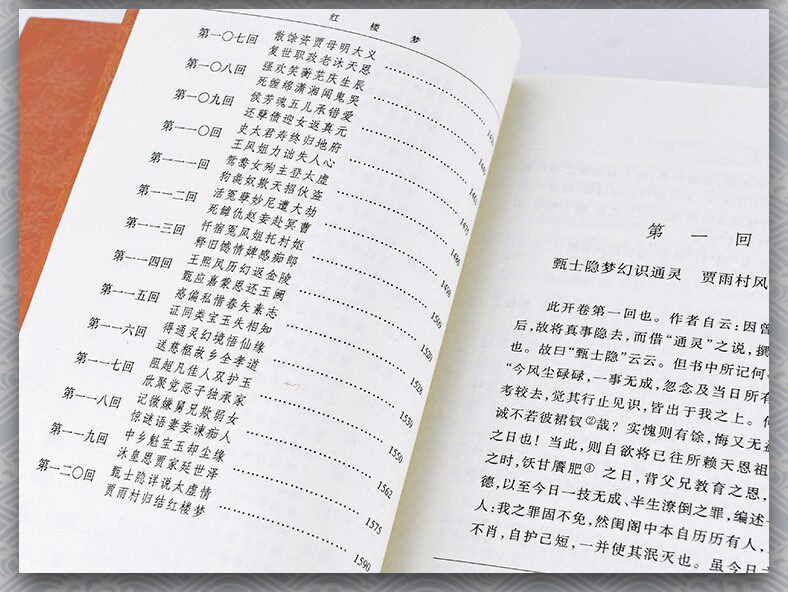 红楼梦
第一〇七回 散馀资贾母明大义
复世职政老沐天恩
第一〇八回 强欢笑蘅芜庆生辰
死缠绵潇湘闻鬼哭
第一〇九回 候芳魂五儿承错爱
还孽债迎女返真元
第一一〇回 史太君寿终归地府
王凤姐力诎失人心 1475
第一一一回 鸳鸯女殉主登太虚
狗彘奴欺天招伙盗 1486
第一一二回 活冤孽妙尼遭大劫
死雠仇赵妾赴冥曹 1498
第一一三回 忏宿冤凤姐托村妪
释旧憾情婢感痴郎 1509
第一一四回 王熙凤历幻返金陵
甄应嘉蒙恩还玉阙 1520
第一一五回 惑偏私惜春矢素志
证同类宝玉失相知 1528
第一一六回 得通灵幻境悟仙缘
送慈柩故乡全孝道 1539
第一一七回 阻超凡佳人双护玉
欣聚党恶子独承家 1550
第一一八回 记微嫌舅兄欺弱女
惊谜语妻妾谏痴人 1562
第一一九回 中乡魁宝玉却尘缘
沐皇恩贾家延世泽 1575
第一二〇回 甄士隐详说太虚情
贾雨村归结红楼梦 1590
第一回
甄士隐梦幻识通灵 贾雨村风
此开卷第一回也。作者自云:因曾
后,故将真事隐去,而借“通灵”之说,撰
也。故曰“甄士隐”云云。但书中所记何
“今风尘碌碌,一事无成,忽念及当日所有
考较去,觉其行止见识,皆出于我之上。何
诚不若彼裙钗②哉?实愧则有余,悔又无益
之日也!当此,则自欲将已往所赖天恩祖
之时,饫甘餍肥④之日,背父兄教育之恩,
德,以至今日一技无成、半生潦倒之罪,编述一
人:我之罪固不免,然闺阁中本自历历有人,
不肖,自护己短,一并使其泯灭也。虽今日